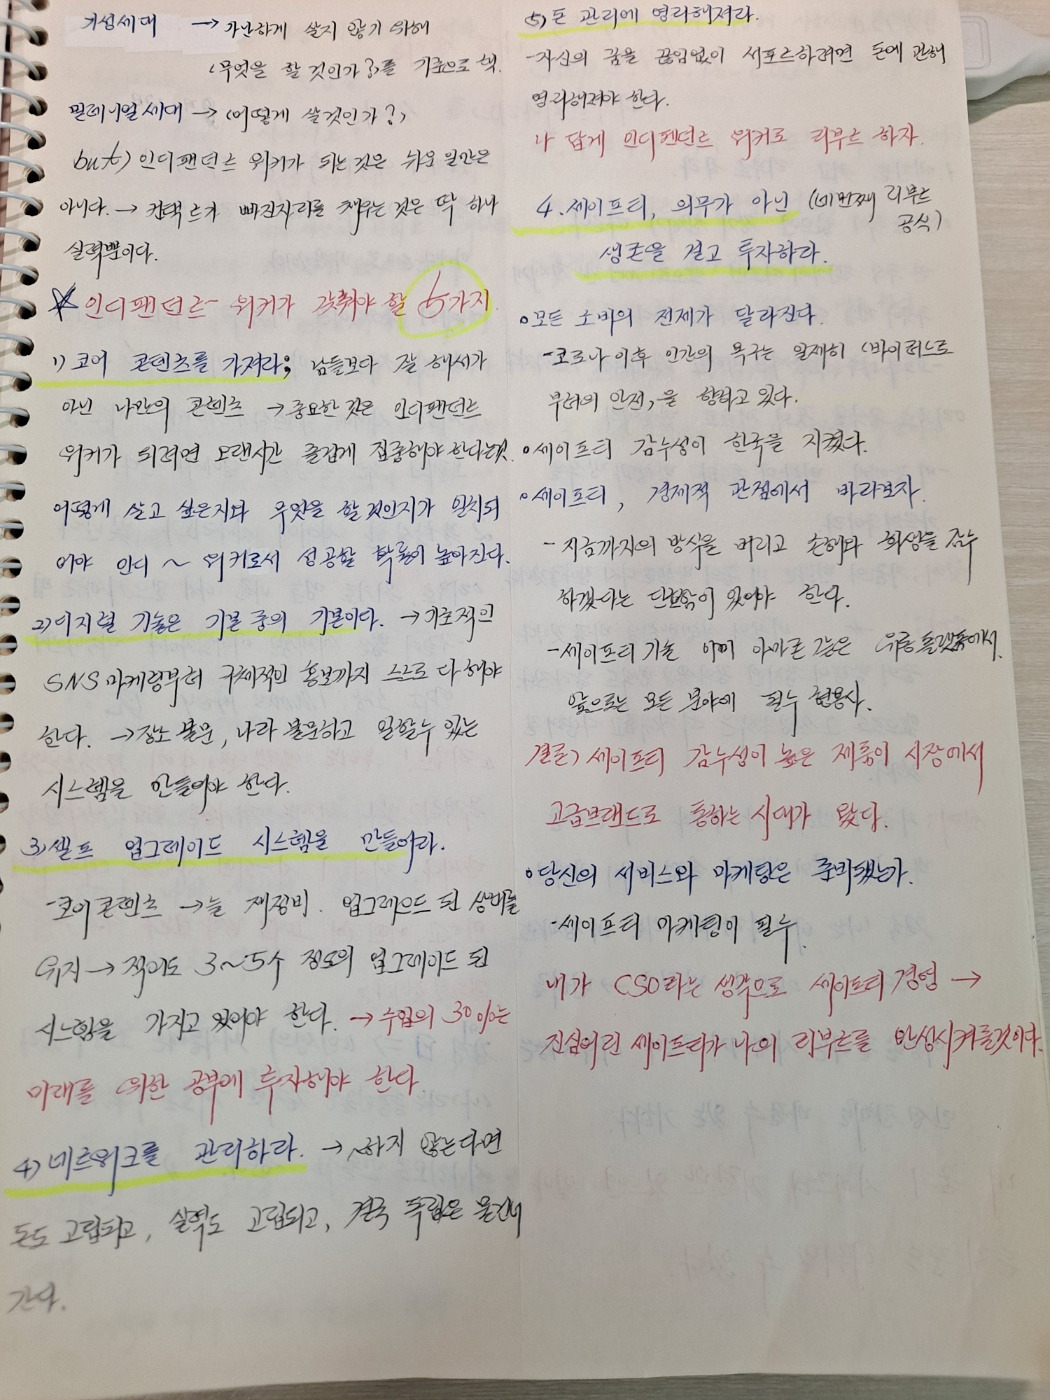 기성세대 → 가난하게 살지 않기 위해
〈무엇을 할 것인가?〉를 기준으로 선택.
밀레니얼 세대 → 〈어떻게 살것인가?〉
but) 인디펜던트 워커가 되는 것은 쉬운 일만은
아니다. → 컨택트가 빠진자리를 채우는 것은 딱 하나
실력뿐이다.
☆ 인디팬던트 워커가 갖춰야 할 5가지
1) 코어 콘텐츠를 가져라; 남들보다 잘 해서가
아닌 나만의 콘텐츠 → 중요한 것은 인디팬던트
워커가 되려면 오랜시간 즐겁게 집중해야 한다는것.
어떻게 살고 싶은지와 무엇을 할 것인지가 일치되
어야 인디 ~ 워커로서 성공할 확률이 높아진다.
2) 디지털 기술은 기본 중의 기본이다. → 기초적인
SNS 마케팅부터 구체적인 홍보까지 스스로 다 해야
한다. → 장소 불문, 나라 불문하고 일할수 있는
시스템을 만들어야 한다.
3) 셀프 업그레이드 시스템을 만들어라.
- 코어콘텐츠 → 늘 재정비. 업그레이드 된 상태를
유지 → 적어도 3~5개 정도의 업그레이드 된
시스템을 가지고 있어야 한다. → 수입의 30%는
미래를 위한 공부에 투자해야 한다.
4) 네트워크를 관리하라. → 하지 않는다면
돈도 고립되고, 실력도 고립되고, 결국 독립은 물건너
간다.
5) 돈 관리에 영리해져라.
- 자신의 꿈을 끊임없이 서포트하려면 돈에 관해
영리해져야 한다.
나 답게 인디팬던트 워커로 리부트 하자.
4. 세이프티, 의무가 아닌 (네번째 리부트
공식)
생존을 걸고 투자하라.
o 모든 소비의 전제가 달라진다.
- 코로나 이후 인간의 욕구는 일제히 〈바이러스로
부터의 안전〉을 향하고 있다.
o 세이프티 감수성이 한국을 지켰다.
o 세이프티, 경제적 관점에서 바라보자.
- 지금까지의 방식을 버리고 손해와 희생을 감수
하겠다는 단호함이 있어야 한다.
- 세이프티 기술 이미 아마존 고는 유통플랫폼에서.
앞으로는 모든 분야에 필수
결론) 세이프티 감수성이 높은 제품이 시장에서
고급브랜드로 통하는 시대가 왔다.
o 당신의 서비스와 마케팅은 준비됐는가.
- 세이프티 마케팅이 필수.
내가 CSO라는 생각으로 세이프티 경영 →
진심어린 세이프티가 나의 리부트를 완성시켜줄것이다.